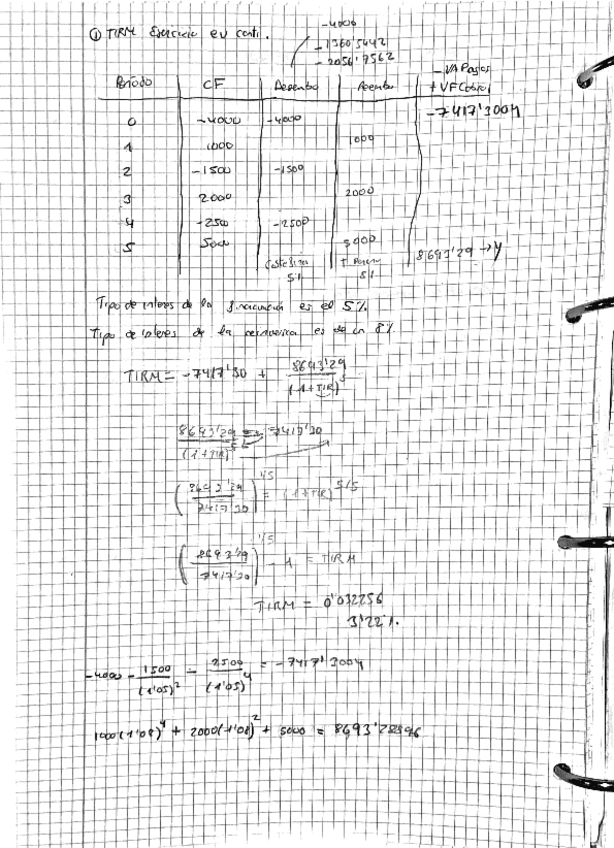 ① TIRM Ejercicio en conti.
-4000
-1360'5442
-2056'7562
Período CF Desembo Reembo - VA Pagos
+ VF Cobros
0 -4000 -4000 -7417'3004
1 1000 1000
2 -1500 -1500
3 2000 2000
4 -2500 -2500
5 5000 5000 8693'29
5% 5%
Tipo de interes de la financiación es el 5%.
Tipo de interes de la es de un 8%
TIRM = -7417'30 + 8693'29 / (1+TIR)^5
8693'29 / (1+TIR) = 7417'30
(8693'29 / 7417'30)^1/5 = (1+TIR)^5/5
(8693'29 / 7417'30)^1/5 - 1 = TIRM
TIRM = 0'032256
3'22%.
-4000 - 1500 / (1'05)^2 - 2500 / (1'05)^4 = -7417'3004
1000(1'08)^4 + 2000(1'08)^2 + 5000 = 8693'28896